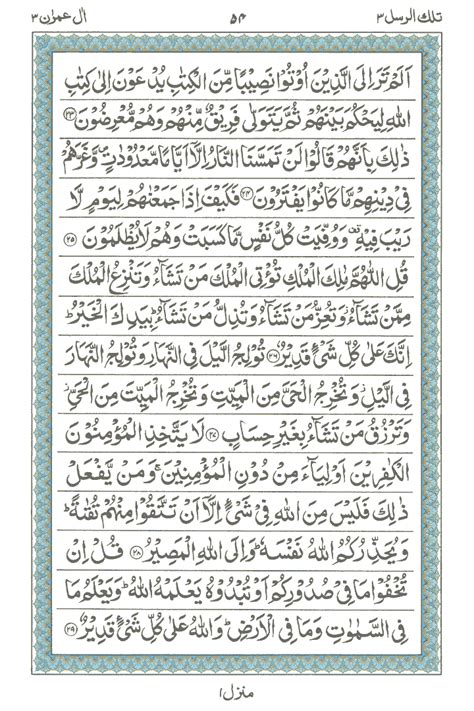 تلك الرسل ٣ ٥٤ اٰل عمرٰن ٣
اَلَمْ تَرَ اِلَى الَّذِيْنَ اُوْتُوْا نَصِيْبًا مِّنَ الْكِتٰبِ يُدْعَوْنَ اِلٰى كِتٰبِ
اللّٰهِ لِيَحْكُمَ بَيْنَهُمْ ثُمَّ يَتَوَلّٰى فَرِيْقٌ مِّنْهُمْ وَهُمْ مُّعْرِضُوْنَ ۝٢٣
ذٰلِكَ بِاَنَّهُمْ قَالُوْا لَنْ تَمَسَّنَا النَّارُ اِلَّاۤ اَيَّامًا مَّعْدُوْدٰتٍ ۪ وَّغَرَّهُمْ
فِيْ دِيْنِهِمْ مَّا كَانُوْا يَفْتَرُوْنَ ۝٢٤ فَكَيْفَ اِذَا جَمَعْنٰهُمْ لِيَوْمٍ لَّا
رَيْبَ فِيْهِ ۫ وَوُفِّيَتْ كُلُّ نَفْسٍ مَّا كَسَبَتْ وَهُمْ لَا يُظْلَمُوْنَ ۝٢٥
قُلِ اللّٰهُمَّ مٰلِكَ الْمُلْكِ تُؤْتِي الْمُلْكَ مَنْ تَشَآءُ وَتَنْزِعُ الْمُلْكَ
مِمَّنْ تَشَآءُ ۫ وَتُعِزُّ مَنْ تَشَآءُ وَتُذِلُّ مَنْ تَشَآءُ ؕ بِيَدِكَ الْخَيْرُ ؕ
اِنَّكَ عَلٰى كُلِّ شَيْءٍ قَدِيْرٌ ۝٢٦ تُوْلِجُ الَّيْلَ فِي النَّهَارِ وَتُوْلِجُ النَّهَارَ
فِي الَّيْلِ ۫ وَتُخْرِجُ الْحَيَّ مِنَ الْمَيِّتِ وَتُخْرِجُ الْمَيِّتَ مِنَ الْحَيِّ ۫
وَتَرْزُقُ مَنْ تَشَآءُ بِغَيْرِ حِسَابٍ ۝٢٧ لَا يَتَّخِذِ الْمُؤْمِنُوْنَ
الْكٰفِرِيْنَ اَوْلِيَآءَ مِنْ دُوْنِ الْمُؤْمِنِيْنَ ۚ وَمَنْ يَّفْعَلْ
ذٰلِكَ فَلَيْسَ مِنَ اللّٰهِ فِيْ شَيْءٍ اِلَّاۤ اَنْ تَتَّقُوْا مِنْهُمْ تُقٰىةً ؕ
وَيُحَذِّرُكُمُ اللّٰهُ نَفْسَهٗ ؕ وَاِلَى اللّٰهِ الْمَصِيْرُ ۝٢٨ قُلْ اِنْ
تُخْفُوْا مَا فِيْ صُدُوْرِكُمْ اَوْ تُبْدُوْهُ يَعْلَمْهُ اللّٰهُ ؕ وَيَعْلَمُ مَا
فِي السَّمٰوٰتِ وَمَا فِي الْاَرْضِ ؕ وَاللّٰهُ عَلٰى كُلِّ شَيْءٍ قَدِيْرٌ ۝٢٩
منزل ١